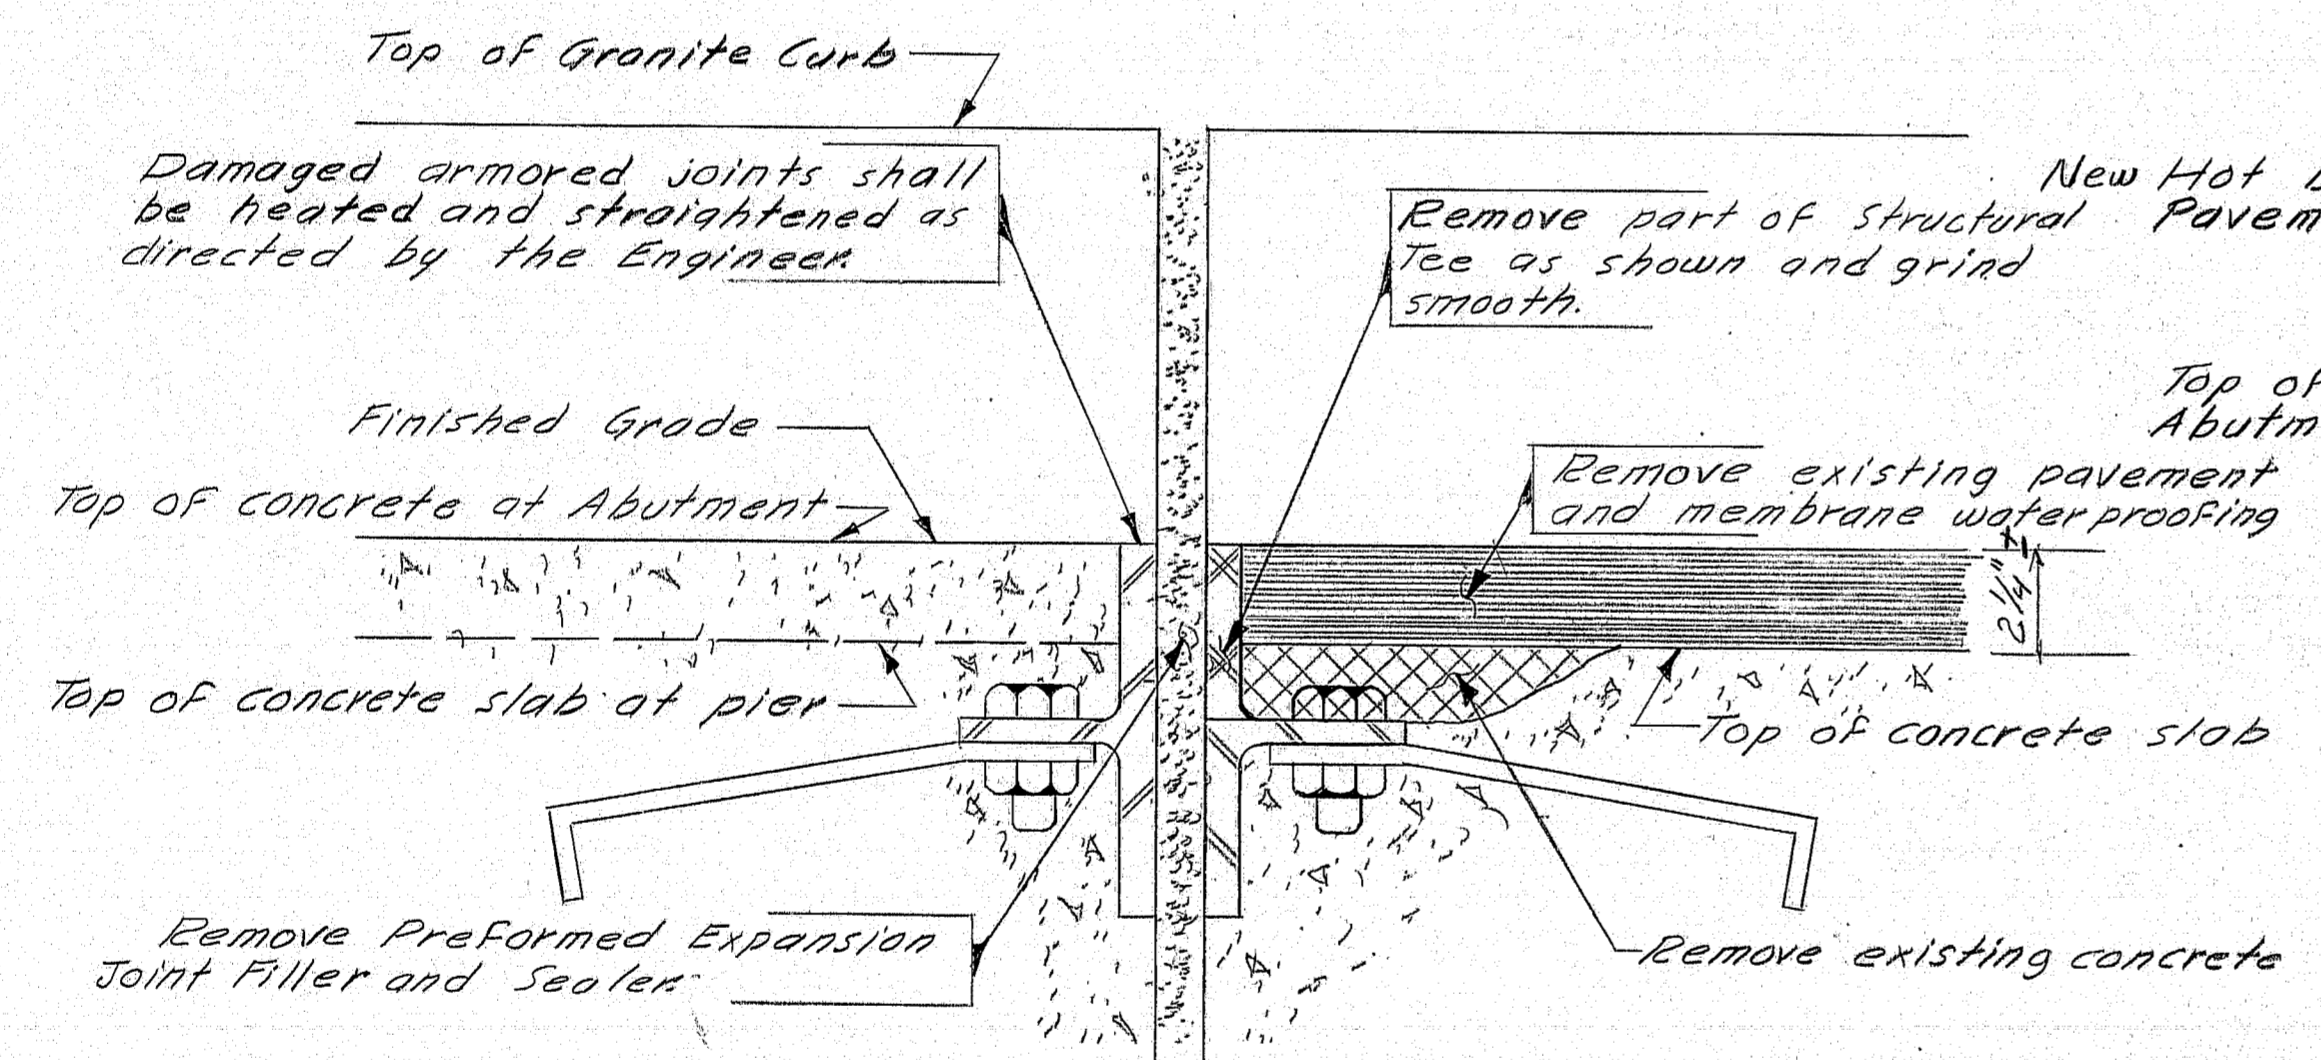 Top of Granite Curb
Damaged armored joints shall
be heated and straightened as
directed by the Engineer.
Remove part of Structural
Tee as shown and grind
smooth.
New Hot
Pavem
Top of
Abutm
Finished Grade
Top of concrete at Abutment
Remove existing pavement
and membrane waterproofing
2 1/4" ±
Top of concrete slab at pier
Top of concrete slab
Remove Preformed Expansion
Joint Filler and Sealer
Remove existing concrete